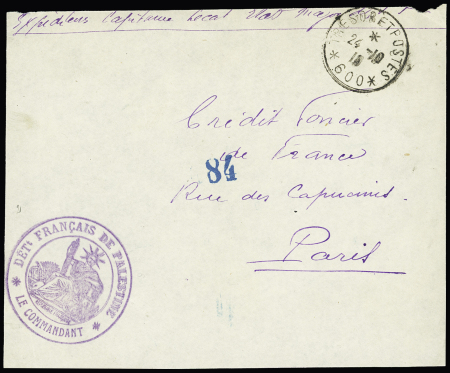 Expéditeur Capitaine Locat Etat Major
TRESOR ET POSTES
24 - 10
18
* 600 *
Crédit Foncier
de France
84
Rue des Capucines
Paris
DÉT. FRANÇAIS DE PALESTINE
* LE COMMANDANT *